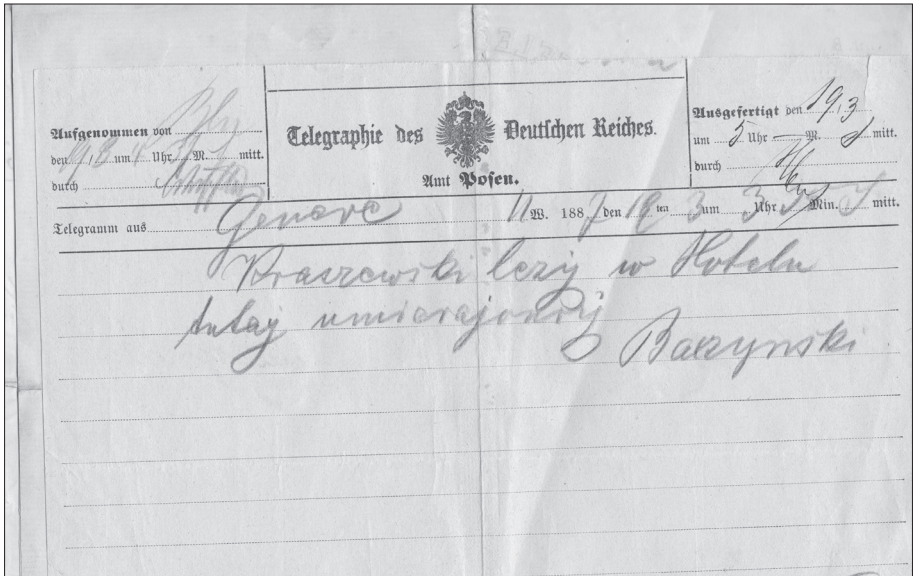 Aufgenommen von
den 19/3 um Uhr M. mitt.
durch
Telegraphie des Deutschen Reiches.
Amt Posen.
Ausgefertigt den 19/3
um 5 Uhr — M. mitt.
durch
Telegramm aus Geneve 11 W. 1887 den 19ten 3 um 3 Uhr Min. mitt.
Kraszewski lezy w Hotelu
tutaj umierajoncy
Baczynski